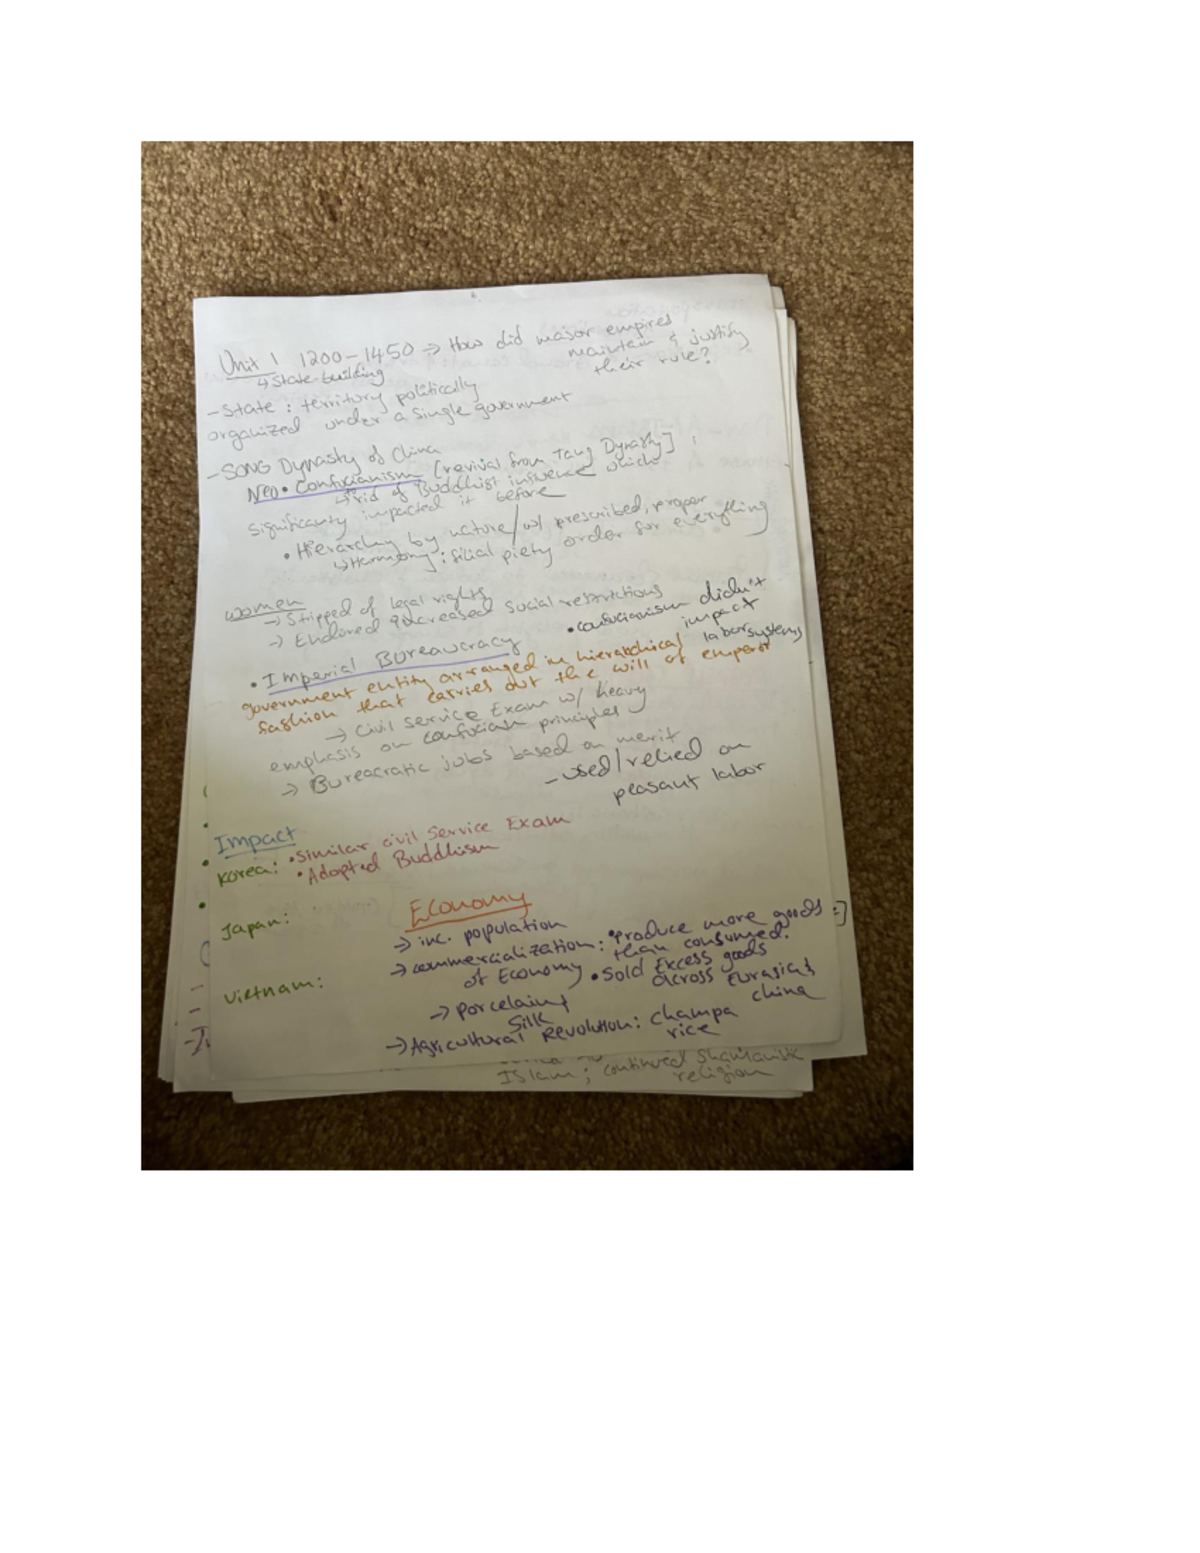 Unit 1 1200-1450 → How did major empires
maintain & justify
their rule?
↳ State-building
- State : territory politically
organized under a single government
- SONG Dynasty of China
Neo • Confucianism [revival from Tang Dynasty]
↳ rid of Buddhist influence which
significantly impacted it before
• Hierarchy by nature / w/ prescribed, proper
↳ Harmony : filial piety order for everything
women
→ Stripped of legal rights
→ Endured increased social restrictions
• Confucianism didn't
impact
labor systems
• Imperial Bureaucracy
government entity arranged in hierarchical
fashion that carries out the will of emperor
→ Civil Service Exam w/ heavy
emphasis on confucian principles
→ Bureacratic jobs based on merit
- used/relied on
peasant labor
Impact
Korea: • similar civil Service Exam
• Adopted Buddhism
Japan:
Vietnam:
Economy
→ inc. population
→ commercialization : • produce more goods
of Economy than consumed.
• Sold Excess goods
across Eurasia &
china
→ porcelain &
Silk
→ Agricultural Revolution: champa
rice
Islam; continued Shamanistic
religion